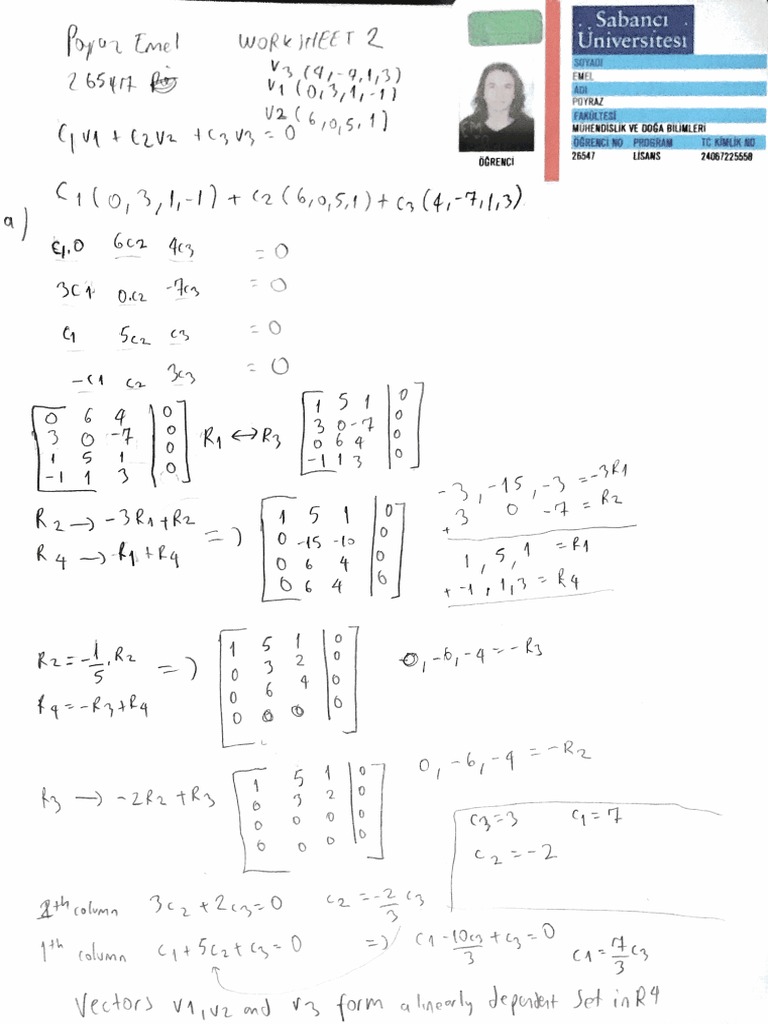 Poyraz Emel WORKSHEET 2
v3 (4,-7,1,3)
v1 (0,3,1,-1)
v2 (6,0,5,1)
C1v1 + C2v2 + C3v3 = 0
Sabancı
Üniversitesi
SOYADI
EMEL
ADI
POYRAZ
FAKÜLTESİ
MÜHENDİSLİK VE DOĞA BİLİMLERİ
ÖĞRENCİ NO PROGRAM TC KİMLİK NO
26547 LİSANS 24067225558
ÖĞRENCİ
C1(0,3,1,-1) + C2(6,0,5,1) + C3(4,-7,1,3)
a)
C1.0 6C2 4C3 = 0
3C1 0.C2 -7C3 = 0
C1 5C2 C3 = 0
-C1 C2 3C3 = 0
0 6 4 | 0
3 0 -7 | 0
1 5 1 | 0
-1 1 3 | 0
R1 ↔ R3
1 5 1 | 0
3 0 -7 | 0
0 6 4 | 0
-1 1 3 | 0
R2 → -3R1+R2
R4 → R1+R4
=>
1 5 1 | 0
0 -15 -10 | 0
0 6 4 | 0
0 6 4 | 0
-3, -15, -3 = -3R1
+ 3 0 -7 = R2
1, 5, 1 = R1
+ -1, 1, 3 = R4
R2 = -1/5 . R2
R4 = -R3+R4
=>
1 5 1 | 0
0 3 2 | 0
0 6 4 | 0
0 0 0 | 0
0, -6, -4 = -R3
R3 → -2R2+R3
1 5 1 | 0
0 3 2 | 0
0 0 0 | 0
0 0 0 | 0
0, -6, -4 = -R2
C3 = 3 C1 = 7
C2 = -2
2th column 3C2 + 2C3 = 0 C2 = -2/3 C3
1th column C1 + 5C2 + C3 = 0 => C1 - 10C3/3 + C3 = 0 C1 = 7/3 C3
Vectors v1, v2 and v3 form a linearly dependent set in R4